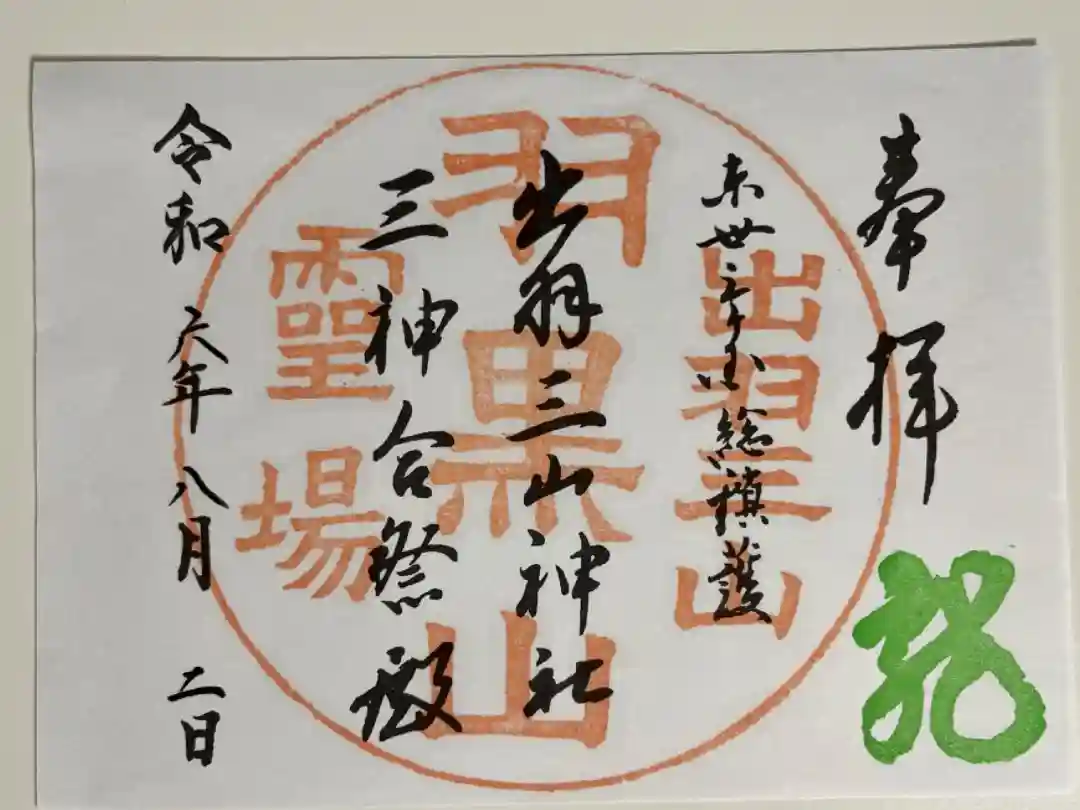 奉拝
龍
東丗三ヶ国総鎮護
出羽三山神社
三神合祭殿
令和六年八月二日
出羽三山
羽黒山
靈場